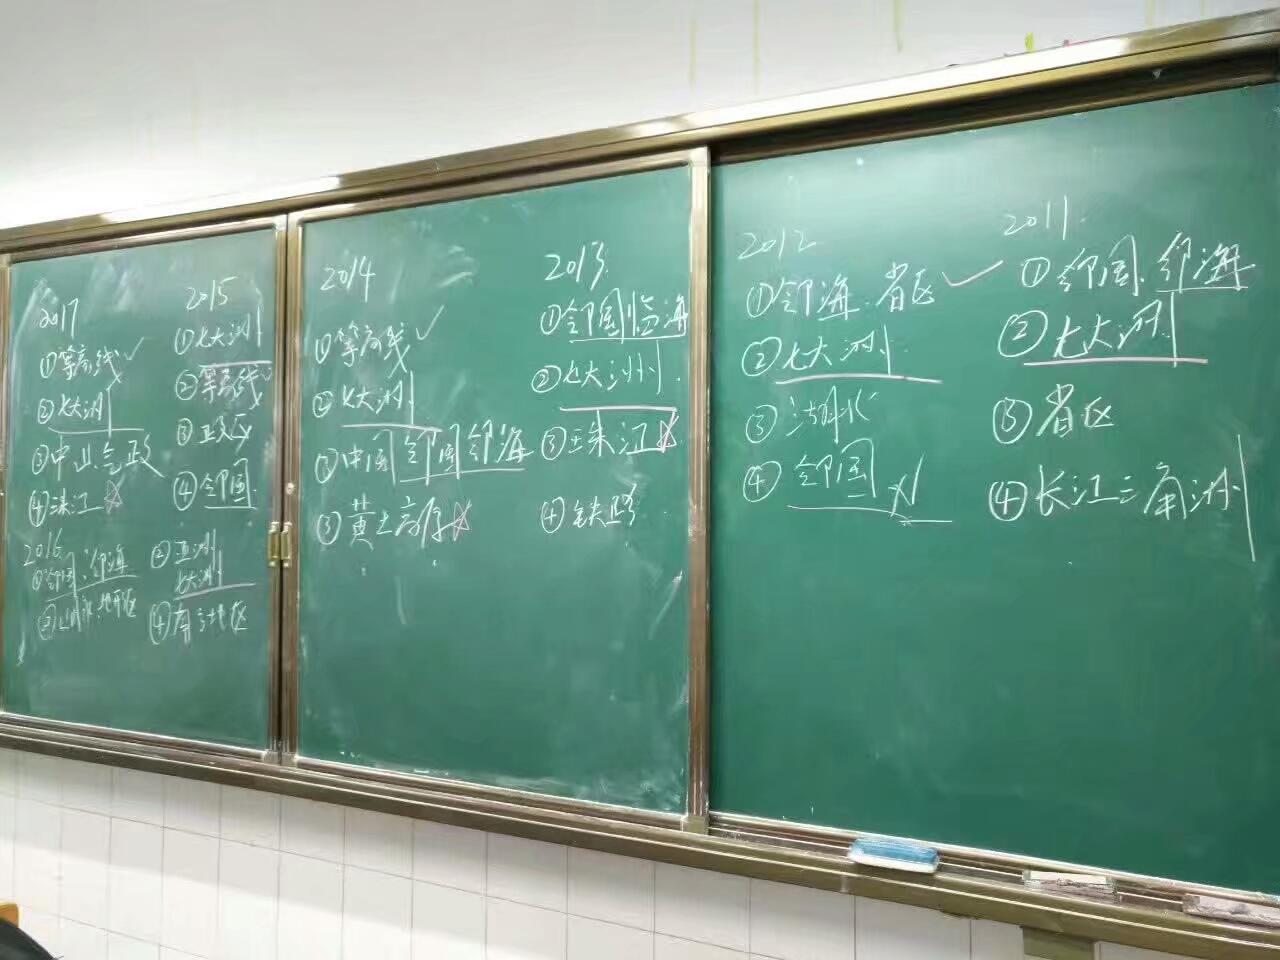 2017
①等高线✓
②七大洲
③中山气政
④珠江☆
2016
①邻国、邻海
②地形区
③亚洲
七大洲
④南方地区
2015
①七大洲
②等高线✓
③亚政区
④邻国
2014
①等高线✓
②七大洲
③中国邻国邻海
③黄土高原☆
2013
①邻国临海
②七大洲
③珠江☆
④铁路
2012
①邻海、省区✓
②七大洲
③湖水
④邻国
2011
①邻国、邻海
②七大洲
③省区
④长江三角洲